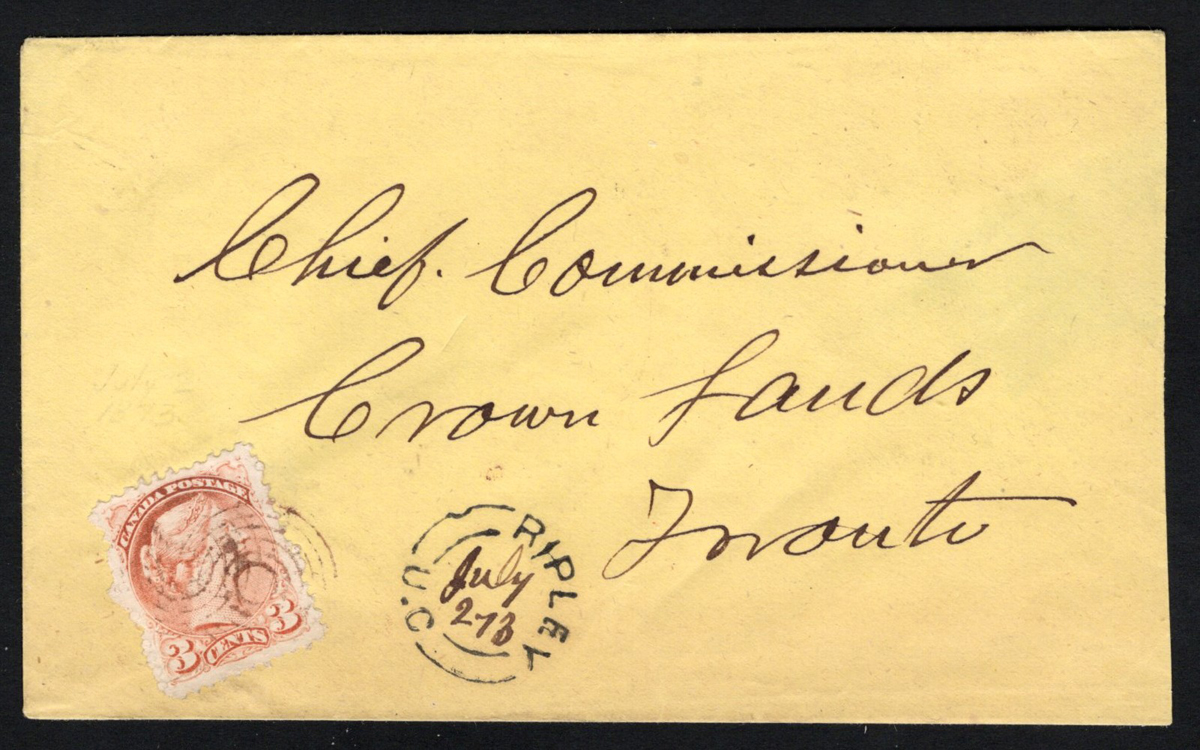 Chief. Commissioner
Crown Lands
Toronto
July
1873
CANADA POSTAGE
3 CENTS 3
RIPLEY
July
2-73
U.C